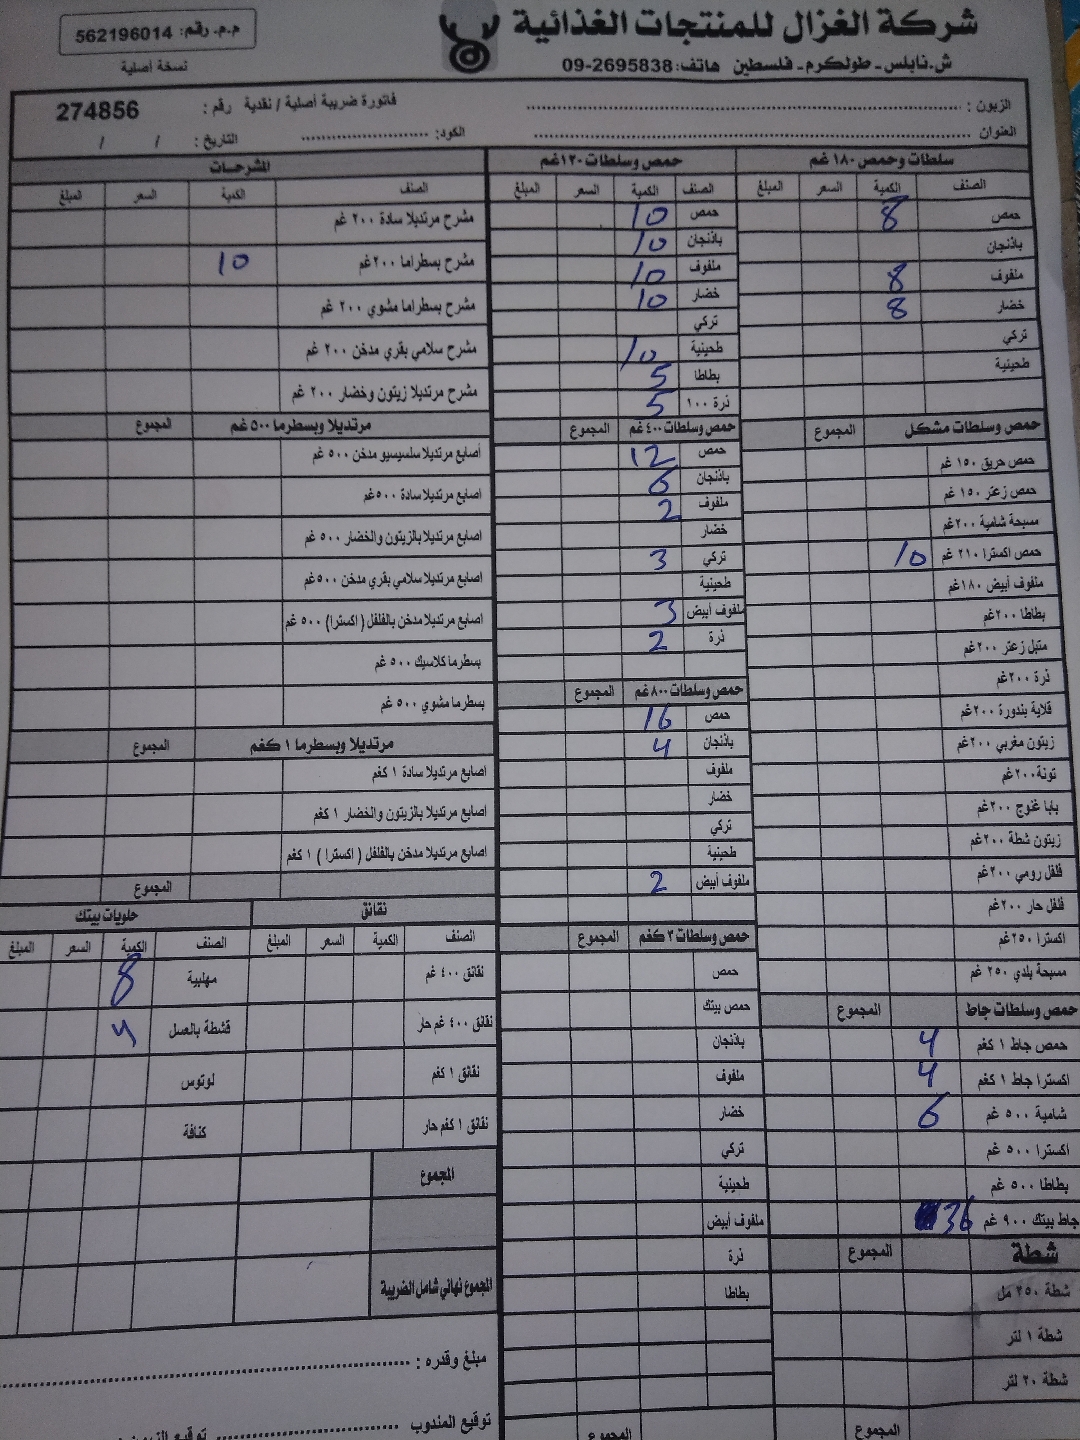 شركة الغزال للمنتجات الغذائية
ش.نابلس - طولكرم - فلسطين هاتف: 09-2695838
م.م. رقم: 562196014
نسخة أصلية
الزبون :
فاتورة ضريبة أصلية / نقدية رقم : 274856
العنوان
الكود:
التاريخ : / /
سلطات وحمص ١٨٠ غم
الصنف الكمية السعر المبلغ
حمص 8
باذنجان
ملفوف 8
خضار 8
تركي
طحينية
حمص وسلطات مشكل المجموع
حمص حريق ١٥٠ غم
حمص زعتر ١٥٠ غم
مسبحة شامية ٢٠٠غم
حمص اكسترا ٢١٠ غم 10
ملفوف أبيض ١٨٠غم
بطاطا ٢٠٠غم
متبل زعتر ٢٠٠غم
ذرة ٢٠٠غم
قلاية بندورة ٢٠٠غم
زيتون مغربي ٢٠٠غم
تونة٢٠٠غم
بابا غنوج ٢٠٠غم
زيتون شطة ٢٠٠غم
فلفل رومي ٢٠٠غم
فلفل حار ٢٠٠غم
اكسترا ٢٥٠غم
مسبحة بلدي ٢٥٠ غم
حمص وسلطات جاط المجموع
حمص جاط ١ كغم 4
اكسترا جاط ١ كغم 4
شامية ٥٠٠ غم 6
اكسترا ٥٠٠ غم
بطاطا ٥٠٠ غم
جاط بيتك ٩٠٠ غم 36
شطة المجموع
شطة ٢٥٠ مل
شطة ١ لتر
شطة ٢٠ لتر
المجموع
حمص وسلطات ١٢٠غم
الصنف الكمية السعر المبلغ
حمص 10
باذنجان 10
ملفوف 10
خضار 10
تركي
طحينية 10
بطاطا 5
ذرة ١٠٠ 5
حمص وسلطات ٤٠٠ غم المجموع
حمص 12
باذنجان 6
ملفوف 2
خضار
تركي 3
طحينية
ملفوف أبيض 3
ذرة 2
حمص وسلطات ٨٠٠ غم المجموع
حمص 16
باذنجان 4
ملفوف
خضار
تركي
طحينية
ملفوف أبيض 2
حمص وسلطات ٣ كغم المجموع
حمص
حمص بيتك
باذنجان
ملفوف
خضار
تركي
طحينية
ملفوف أبيض
ذرة
بطاطا
المجموع
المشرحات
الصنف الكمية السعر المبلغ
مشرح مرتديلا سادة ٢٠٠ غم
مشرح بسطراما ٢٠٠غم 10
مشرح بسطراما مشوي ٢٠٠ غم
مشرح سلامي بقري مدخن ٢٠٠ غم
مشرح مرتديلا زيتون وخضار ٢٠٠ غم
مرتديلا وبسطرما ٥٠٠ غم المجموع
أصابع مرتديلا سلسيسيو مدخن ٥٠٠ غم
اصابع مرتديلا سادة ٥٠٠غم
اصابع مرتديلا بالزيتون والخضار ٥٠٠ غم
اصابع مرتديلا سلامي بقري مدخن ٥٠٠غم
اصابع مرتديلا مدخن بالفلفل ( اكسترا) ٥٠٠ غم
بسطرما كلاسيك ٥٠٠ غم
بسطرما مشوي ٥٠٠ غم
مرتديلا وبسطرما ١ كغم المجموع
اصابع مرتديلا سادة ١ كغم
اصابع مرتديلا بالزيتون والخضار ١ كغم
اصابع مرتديلا مدخن بالفلفل ( اكسترا ) ١ كغم
المجموع
نقانق
الصنف الكمية السعر المبلغ
نقانق ٤٠٠ غم
نقانق ٤٠٠ غم حار
نقانق ١ كغم
نقانق ١ كغم حار
حلويات بيتك
الصنف الكمية السعر المبلغ
مهلبية 8
قشطة بالعسل 4
لوتوس
كنافة
المجموع
المجموع نهائي شامل الضريبة
مبلغ وقدره :
توقيع المندوب توقيع